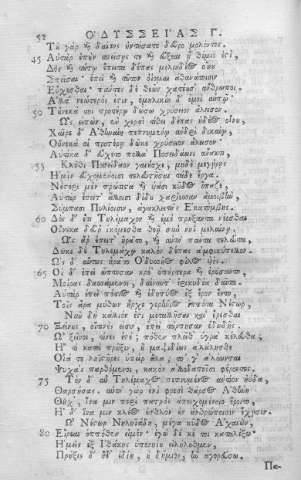 52 ΟΔΥΣΣΕΙΑΣ Γ.
Τῆ γὰρ ἢ δαίτης ἠντήσατε δεῦρο μολόντες.
45 Αὐτὰρ ἐπὴν σπείσῃς τε ἢ εὔξεαι ἣ θέμις ἐςὶ,
Δὸς ἢ τούτῳ ἔπειτα δέπας μελιηδέ⊙ οἴνου
Σπεῖσαι· ἐπεὶ ἢ τοῦτον ὀΐομαι ἀθανάτοισιν
Εὔχεσθαι· πάντες δὲ θεῶν χατέουσ' ἄνθρωποι,
Ἀλλὰ νεώτερός ἐςιν, ὁμηλικίη δ' ἐμοὶ αὐτῷ·
50 Τοὔνεκα σοὶ προτέρῳ δώσω χρύσειον ἄλεισον.
Ὣς εἰπὼν, ἐν χερσὶ τίθει δέπας ἡδέ⊙ οἴνου,
Χαῖρε δ' Ἀθηναίη πεπνυμένῳ ἀνδρὶ δικαίῳ,
Οὕνεκά οἱ προτέρῃ δῶκε χρύσειον ἄλεισον·
Αὐτίκα δ' εὔχετο πολλὰ Ποσειδάωνι ἄνακτι,
55 Κλῦθι Ποσείδαον γαιήοχε, μηδὲ μεγήρῃς
Ἡμῖν εὐχομένοισι τελευτῆσαι τάδε ἔργα.
Νέςορι μὲν πρώτιςα ἢ υἱάσι κῦδ⊙ ὄπαζε,
Αὐτὰρ ἔπειτ' ἄλλοισι δίδου χαρίεσσαν ἀμοιβὴν
Σύμπασιν Πυλίοισιν, ἀγακλειτῆς Ἑκατόμβης.
60 Δὸς δ' ἔτι Τηλέμαχον ἢ ἐμὲ πρήξαντα νέεσθαι
Οὕνεκα δεῦρ' ἱκόμεσθα θοῇ σὺν νηῒ μελαίνῃ.
Ὣς ἄρ' ἔπειτ' ἠρᾶτο, ἢ αὐτὴ πάντα τελεύτα,
Δῶκε δὲ Τηλεμάχῳ καλὸν δέπας ἀμφικύπελλον·
Ὣς δ' αὔτως ἠρᾶτο Ὀδυσσῆ⊙ φίλ⊙ υἱός.
65 Οἱ δ' ἐπεὶ ὤπτησαν κρέ' ὑπέρτερα ἢ ἐρύσαντο,
Μοίρας δασσάμενοι, δαίνυντ' ἐρικυδέα δαῖτα.
Αὐτὰρ ἐπεὶ πόσι⊙ ἢ ἐδητύ⊙ ἐξ ἔρον ἕντο,
Τοῖς ἄρα μύθων ἦρχε Γερήνι⊙ ἱππότα Νέςωρ,
Νῦν δὴ κάλλιόν ἐςι μεταλλῆσαι καὶ ἐρέσθαι
70 Ξείνους, οἵτινές εἰσιν, ἐπεὶ τάρπησαν ἐδωδῆς·
Ὦ ξεῖνοι, τίνες ἐςέ; πόθεν πλεῖθ' ὑγρὰ κέλευθα;
Ἦ τι κατὰ πρῆξιν, ἢ μαψιδίως ἀλάλησθε
Οἷά τε ληϊςῆρες ὑπεὶρ ἅλα, τοί τ' ἀλόωνται
Ψυχὰς παρθέμενοι, κακὸν ἀλλοδαποῖσι φέροντες.
75 Τὸν δ' αὖ Τηλέμαχ⊙ πεπνυμέν⊙ ἀντίον ηὔδα,
Θαρσήσας. αὐτὴ γὰρ ἐνὶ φρεσὶ θάρσ⊙ Ἀθήνη
Θῆχ', ἵνα μιν περὶ πατρὸς ἀποιχομένοιο ἔροιτο,
Ἠδ' ἵνα μιν κλέ⊙ ἐσθλὸν ἐν ἀνθρώποισιν ἔχῃσιν.
Ὦ Νέςορ Νηληϊάδη, μέγα κῦδ⊙ Ἀχαιῶν,
80 Εἴρεαι ὁππόθεν εἰμέν· ἐγὼ δέ κέ τοι καταλέξω·
Ἡμεῖς ἐξ Ἰθάκης ὑπονηΐου εἰλήλουθμεν,
Πρῆξις δ' ἥδ' ἰδίη, οὐ δήμιος, ἣν ἀγορεύσω.
Πα-